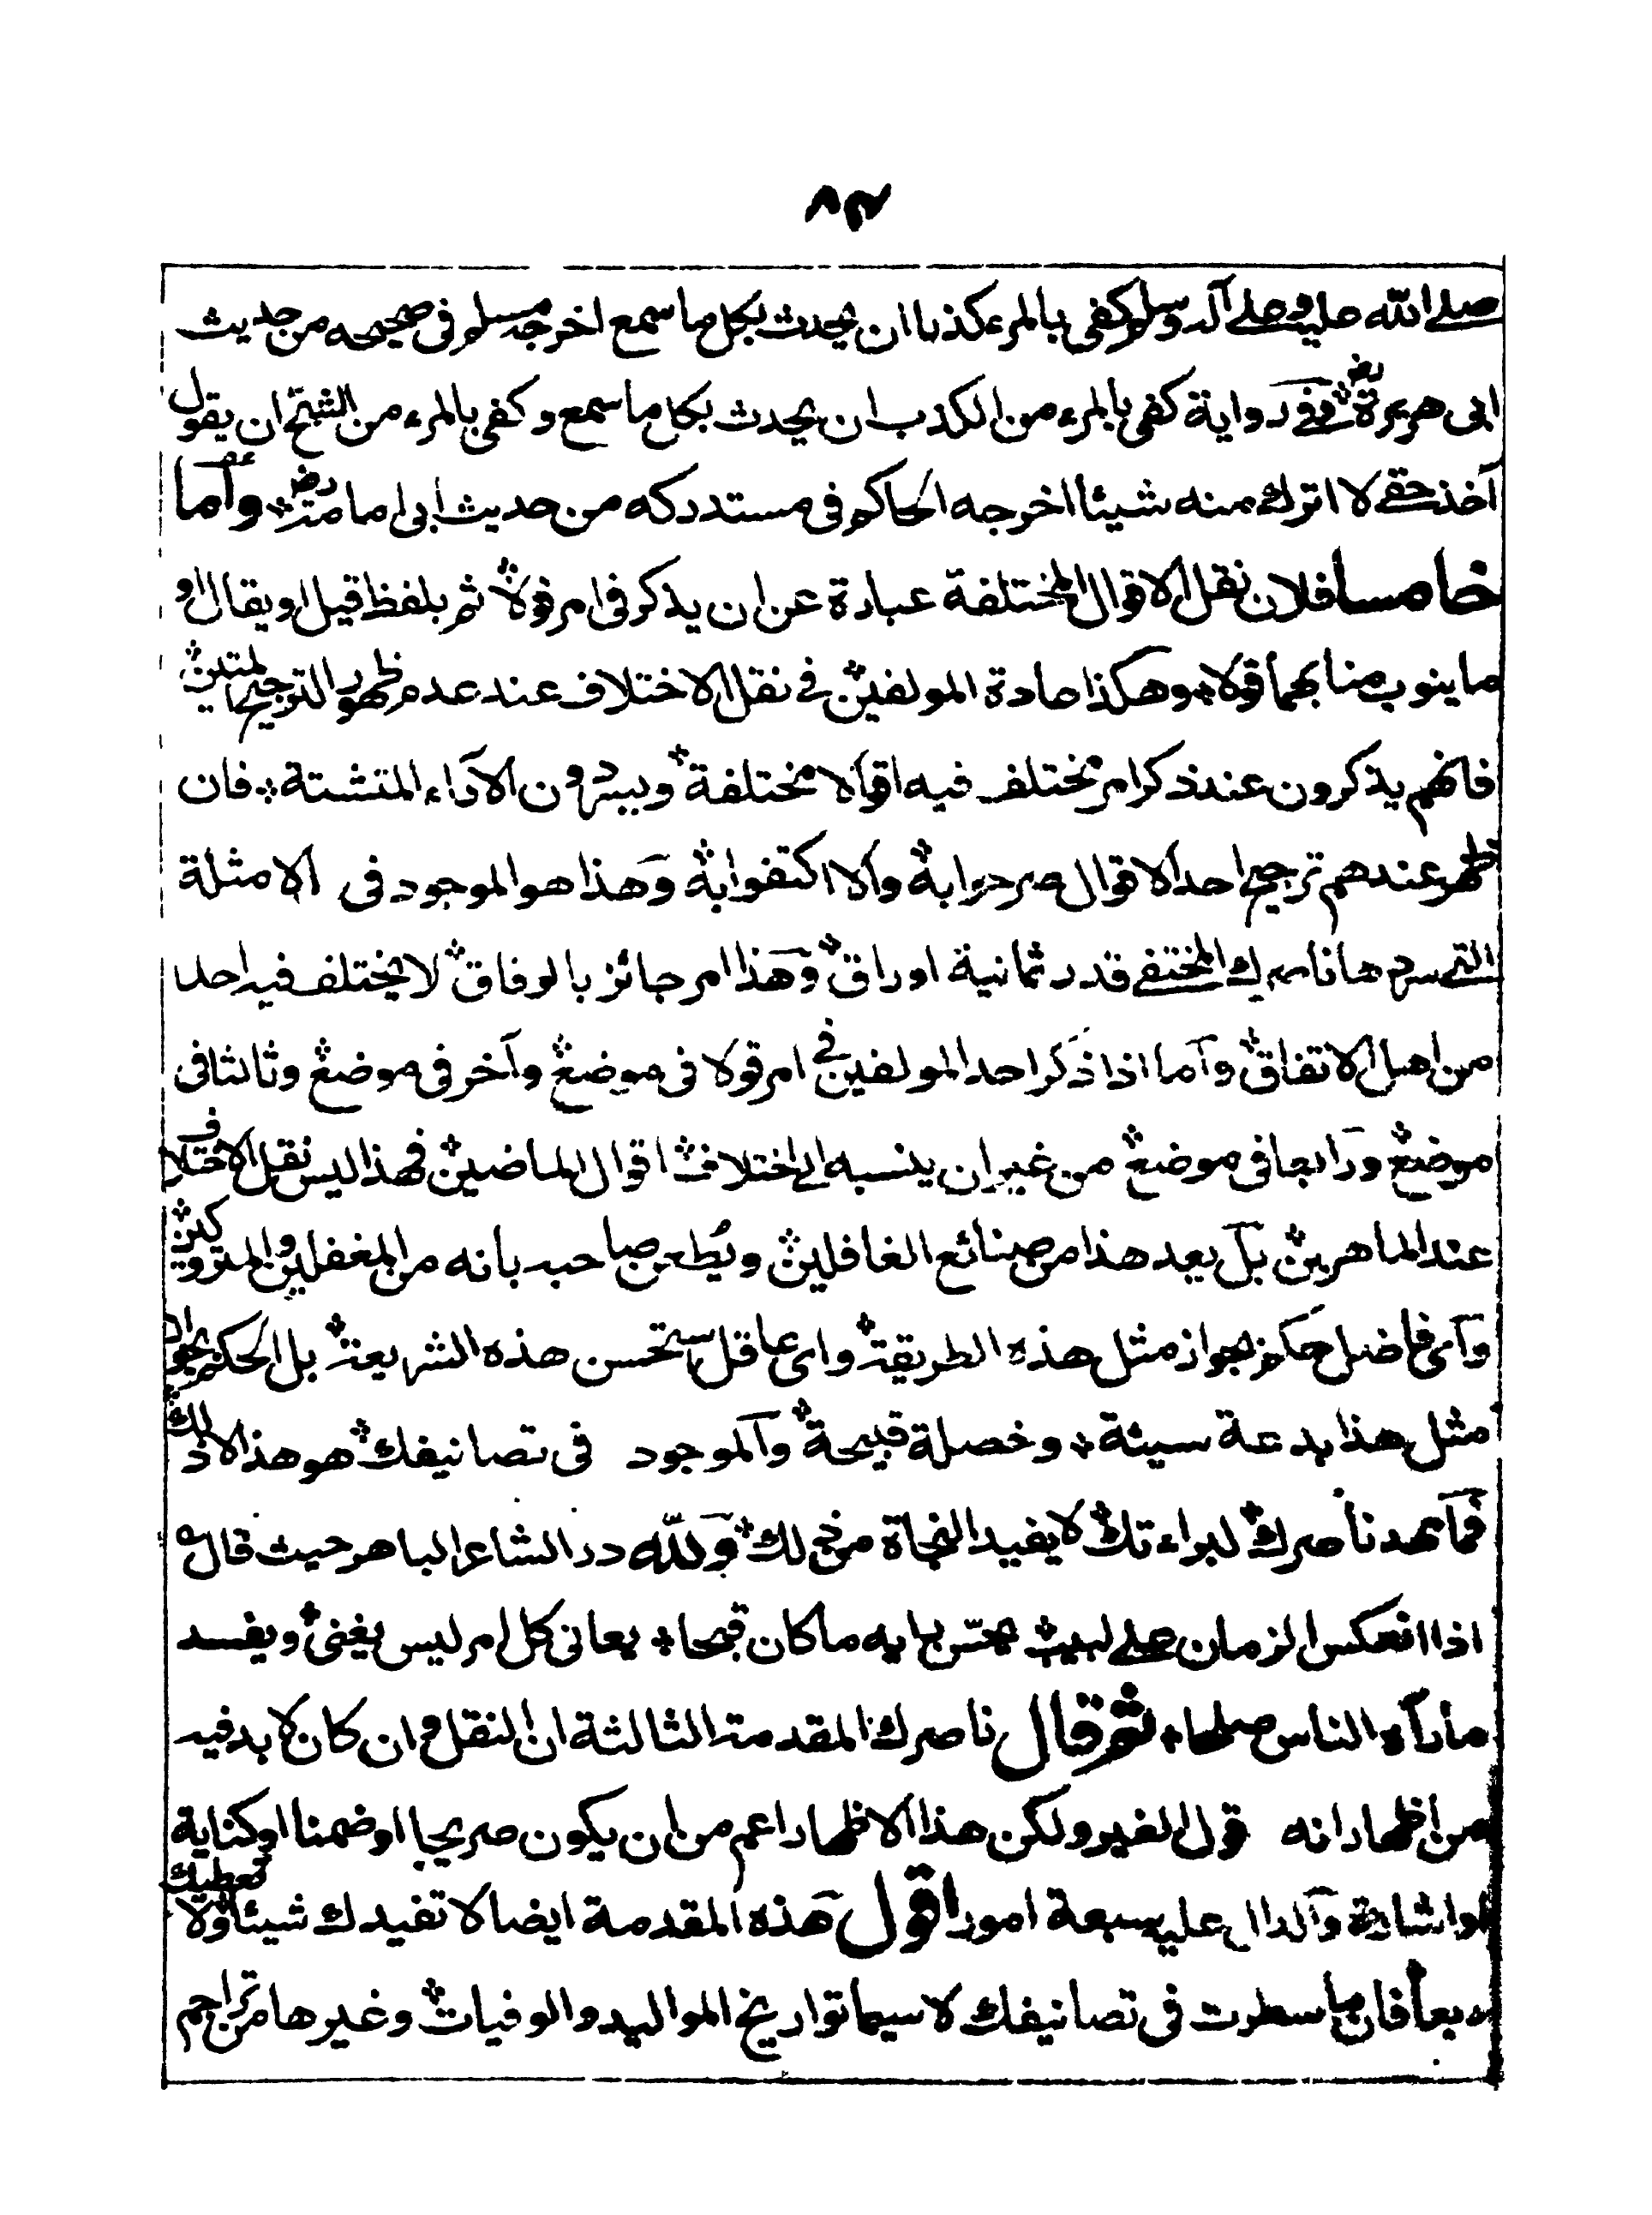 ٨٣
صلے الله عليه وعلے آله وسلم كفى بالمرء كذبا ان يحدث بكل ما سمع اخرجه مسلم فى صحيحه من حديث
ابى هريرة رض وفے رواية كفى بالمرء من الكذب ان يحدث بكل ما سمع وكفى بالمرء من الشح ان يقول
آخذ حقے لا اترك منه شيئا اخرجه الحاكم فى مستدركه من حديث ابى امامة رض وأما
خامسا فلان نقل الاقوال المختلفة عبارة عن ان يذكر فى امر قولا ثم بلفظ قيل او يقال او
ما ينوب منابهما قولا وهكذا عادة المولفين فے نقل الاختلاف عند عدم ظهور الترجيح المتين
فانهم يذكرون عند ذكر امر مختلف فيه اقوالا مختلفة ويسردون الآراء المتشتتة فان
ظهر عندهم ترجيح احد الاقوال صرحوا به والا اكتفوا به وهذا هو الموجود فى الامثلة
التے سردها ناصرك المختفے قدر ثمانية اوراق وهذا امر جائز بالوفاق لا يختلف فيه احد
من اهل الاتفاق وأما اذا ذكر احد المولفين فے امر قولا فى موضع وآخر فى موضع وثالثا فى
موضع ورابعا فى موضع من غير ان ينسبه الے اختلاف اقوال الماضين فهذا ليس نقل الاختلاف
عند الماهرين بل يعد هذا من صنائع الغافلين ويُطعن صاحبه بانه من المغفلين والمتروكين
وآى فاضل حكم بجواز مثل هذه الطريقة واى عاقل يستحسن هذه الشريعة بل الحكم بجواز
مثل هذا بدعة سيئة وخصلة قبيحة والموجود فى تصانيفك هو هذا لا ذلك
فما مهد ناصرك لبراءتك لا يفيد النجاة من ذلك ولله در الشاعر الباهر حيث قال
اذا انعكس الزمان علے لبيب يحسّن رايه ما كان قبحا يعانى كل امر ليس يغنى ويفسد
ما رآه الناس صلحا ثم قال ناصرك المقدمة الثالثة ان النقل وان كان لا بد فيه
من اظهار انه قول الغير ولكن هذا الاظهار اعم من ان يكون صريحا او ضمنا او كناية
او اشارة والدال عليه سبعة امور اقول هذه المقدمة ايضا لا تفيدك شيئا ولا تعطيك
ربعا فان ما سطرت فى تصانيفك لا سيما تواريخ المواليد والوفيات وغيرها من تراجم